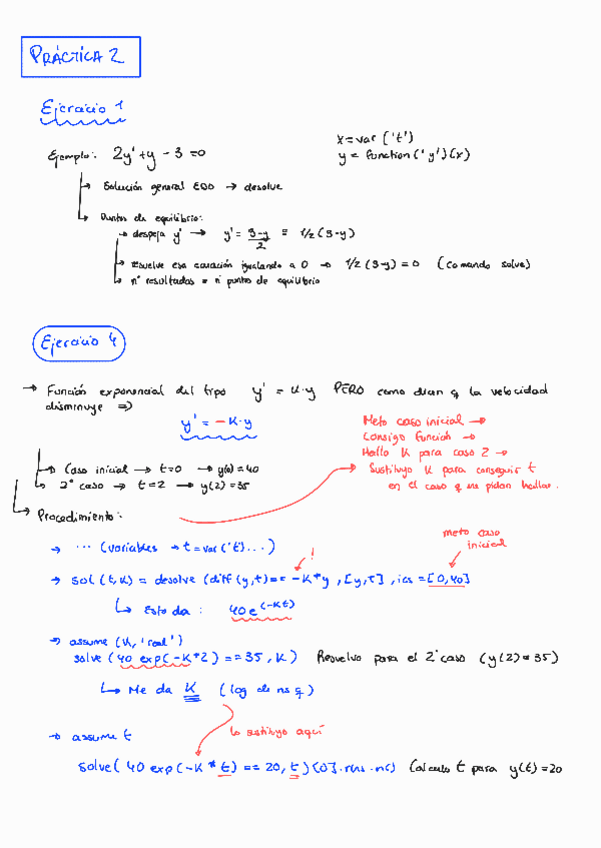 PRÁCTICA 2
Ejercicio 1
x = var ('t')
y = function('y')(x)
Ejemplo: 2y' + y - 3 = 0
Solución general EDO → desolve
Puntos de equilibrio:
→ despeja y' → y' = 3-y/2 = 1/2 (3-y)
→ resuelve esa ecuación igualando a 0 → 1/2 (3-y) = 0 (comando solve)
→ nº resultados = nº puntos de equilibrio
Ejercicio 4
→ Función exponencial del tipo y' = K·y PERO como dicen q la velocidad
disminuye ⇒
y' = -K·y
Meto caso inicial →
Consigo función →
Hallo K para caso 2 →
Sustituyo K para conseguir t
en el caso q me pidan hallar.
→ Caso inicial → t=0 → y(0) = 40
→ 2º caso → t=2 → y(2) = 35
→ Procedimiento:
meto caso
inicial
→ ... (variables → t = var('t')...)
!
→ sol (t,K) = desolve (diff(y,t) == -K*y, [y,t], ics = [0,40]
↳ Esto da: 40e^(-Kt)
→ assume (K, 'real')
solve (40 exp(-K*2) == 35, K) Resuelvo para el 2º caso (y(2) = 35)
↳ Me da K (log de ns q)
lo sustituyo aquí
→ assume t
solve( 40 exp(-K * t) == 20, t)[0].rhs.n() Calculo t para y(t) = 20